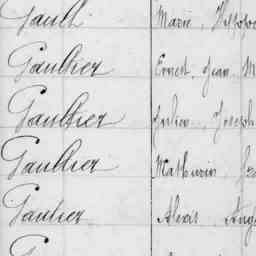 Gault Marie, Hippol
Gaultier Ernest, Jean, M
Gaultier Julien, Joseph
Gaultier Mathurin,
Gautier Alexis, Ang